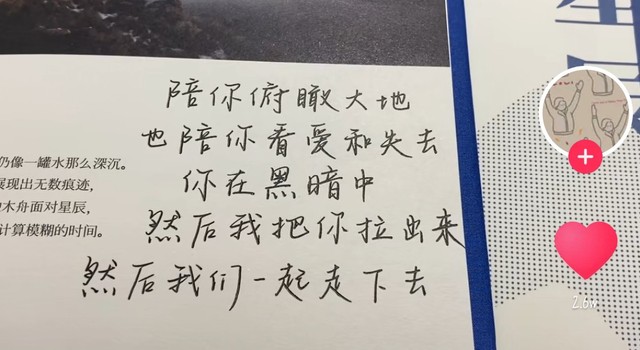 陪你俯瞰大地
也陪你看爱和失去
你在黑暗中
然后我把你拉出来
然后我们一起走下去
仍像一罐水那么深沉。
展现出无数痕迹,
木舟面对星辰,
计算模糊的时间。
2.6w